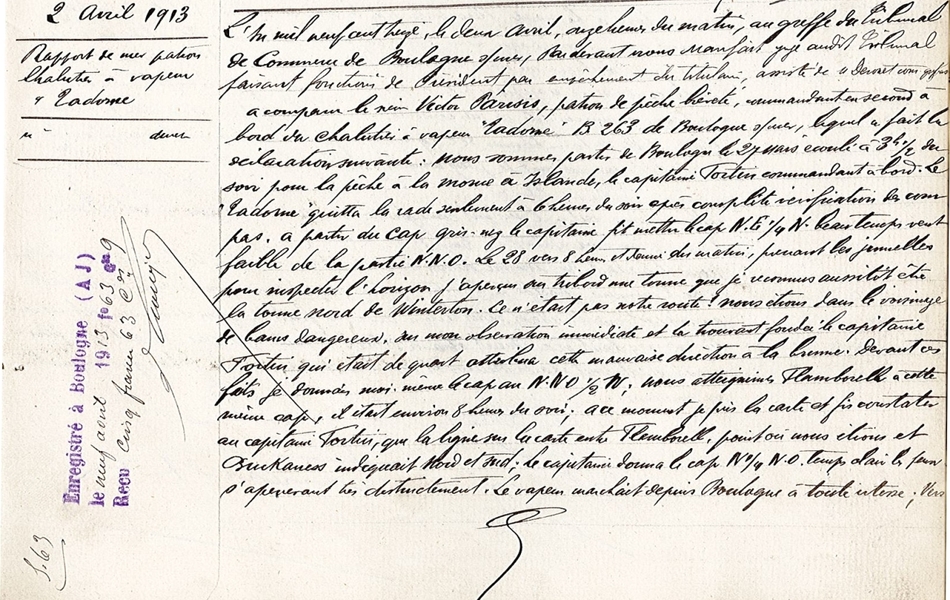 2 Avril 1913
Rapport de mer patron
Chalutier à vapeur
"Tadorne"
L'an mil neuf cent treize, le deux avril, onze heures du matin, au greffe du Tribunal
de Commerce de Boulogne s/mer, Pardevant nous juge audit Tribunal
faisant fonctions de Président par empêchement du titulaire, assisté de
a comparu le sieur Victor Parisis, patron de pêche breveté, commandant en second à
bord du chalutier à vapeur "Tadorne" B 263 de Boulogne s/mer, lequel a fait la
déclaration suivante : nous sommes partis de Boulogne le 27 mars écoulé à 3h 1/2 du
soir pour la pêche à la morue à Islande, le capitaine Fortin commandant à bord. Le
"Tadorne" quitta la rade seulement à 6 heures du soir après complète vérification des com
pas. a partir du Cap gris-nez le capitaine fit mettre le cap N.E 1/4 N. beau temps vent
faible de la partie N.N.O. Le 28 vers 8 heures et demi du matin, prenant les jumelles
pour inspecter l'horizon j'aperçus sur tribord une tonne que je reconnus aussitôt être
la tonne Nord de Winterton. Ce n'était pas notre route ! nous étions dans le voisinage
de bancs dangereux. sur mon observation immédiate et la trouvant fondée le capitaine
Fortin qui était de quart attribua cette mauvaise direction à la brume. Devant ces
faits je donnai moi-même le cap au N.N.O 1/2 N, nous atteignîmes Flamborell à cette
même cap, il était environ 8 heures du soir. a ce moment je pris la carte et fis constater
au capitaine Fortin, que la ligne sur la carte entre Flamborell, point où nous étions et
indiquait Nord et sud ; le capitaine donna le cap N 1/4 N.O. temps clair, les feux
s'apercevant très distinctement. Le vapeur marchait depuis Boulogne à toute vitesse ; Vers
Enregistré à Boulogne (A J)
le neuf avril 1913 fo 63 Cse 9
Reçu Cinq francs 63 Ces
S. 63